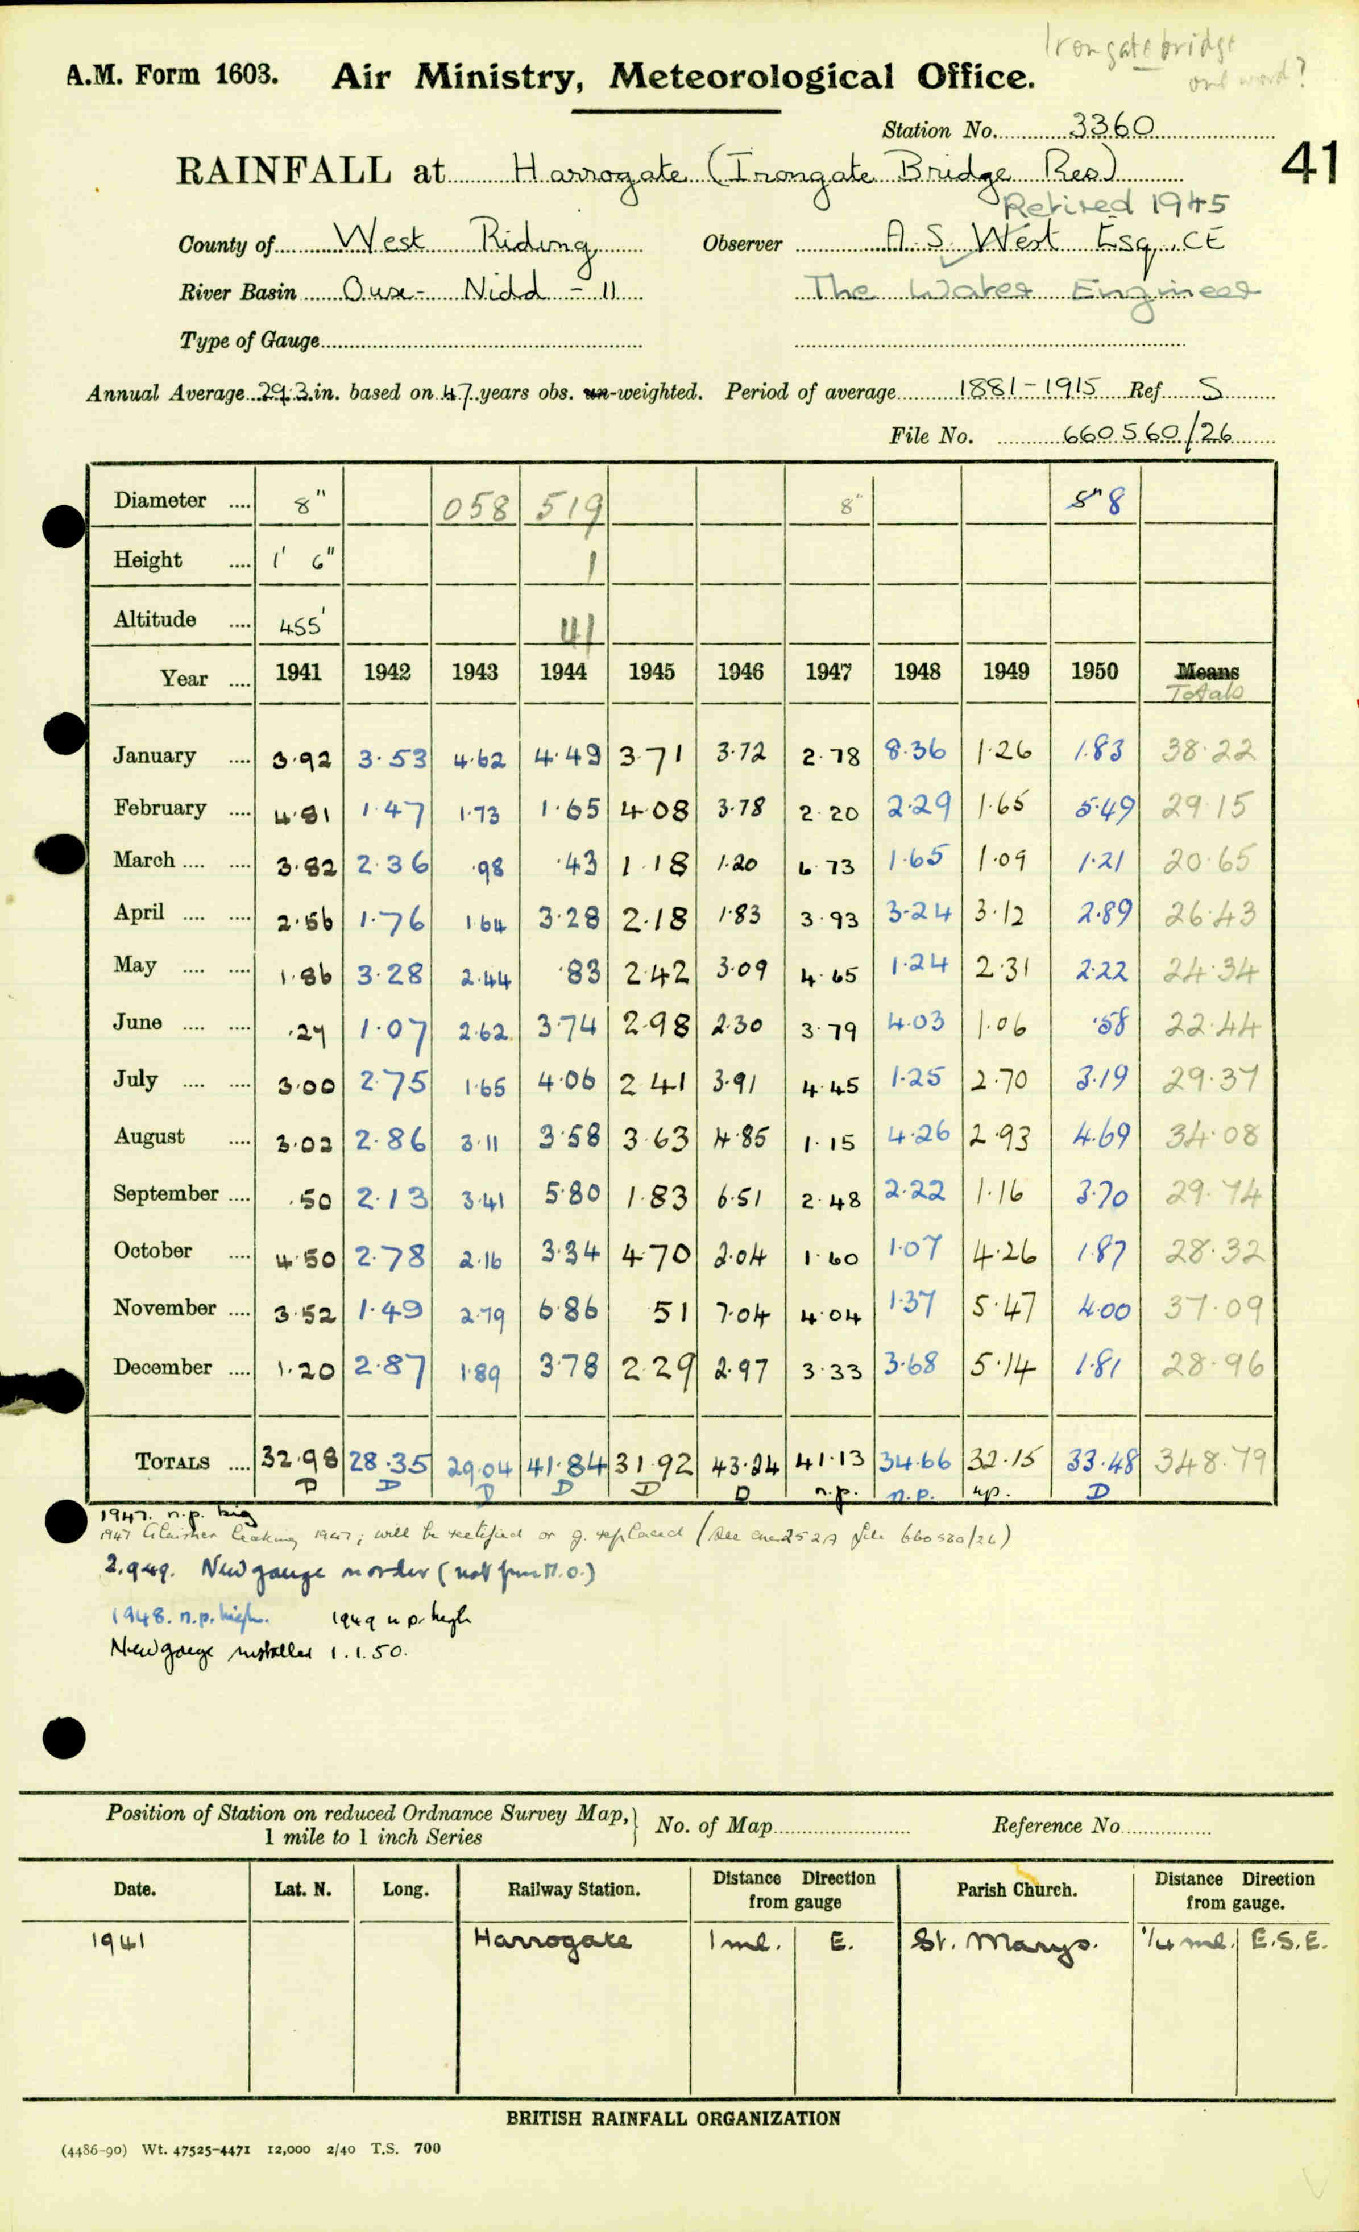 Irongate bridge
one word?
A.M. Form 1603. Air Ministry, Meteorological Office.
Station No. 3360
41
RAINFALL at Harrogate (Irongate Bridge Res)
Retired 1945
County of West Riding Observer A S West Esq., CE
River Basin Ouse - Nidd - 11 The Water Engineer
Type of Gauge
Annual Average 29.3 in. based on 47 years obs. un-weighted. Period of average 1881-1915 Ref S
File No. 660560/26
Diameter .... 8" 058 519 8" 5" 8
Height .... 1' 6" 1
Altitude .... 455' 41
Year .... 1941 1942 1943 1944 1945 1946 1947 1948 1949 1950 Means
Totals
January .... 3.92 3.53 4.62 4.49 3.71 3.72 2.78 8.36 1.26 1.83 38.22
February .... 4.81 1.47 1.73 1.65 4.08 3.78 2.20 2.29 1.65 5.49 29.15
March .... .... 3.82 2.36 .98 .43 1.18 1.20 6.73 1.65 1.09 1.21 20.65
April .... .... 2.56 1.76 1.64 3.28 2.18 1.83 3.93 3.24 3.12 2.89 26.43
May .... .... 1.86 3.28 2.44 .83 2.42 3.09 4.65 1.24 2.31 2.22 24.34
June .... .... .27 1.07 2.62 3.74 2.98 2.30 3.79 4.03 1.06 .58 22.44
July .... .... 3.00 2.75 1.65 4.06 2.41 3.91 4.45 1.25 2.70 3.19 29.37
August .... 3.02 2.86 3.11 3.58 3.63 4.85 1.15 4.26 2.93 4.69 34.08
September .... .50 2.13 3.41 5.80 1.83 6.51 2.48 2.22 1.16 3.70 29.74
October .... 4.50 2.78 2.16 3.34 4.70 2.04 1.60 1.07 4.26 1.87 28.32
November .... 3.52 1.49 2.79 6.86 51 7.04 4.04 1.37 5.47 4.00 37.09
December .... 1.20 2.87 1.89 3.78 2.29 2.97 3.33 3.68 5.14 1.81 28.96
TOTALS .... 32.98 28.35 29.04 41.84 31.92 43.24 41.13 34.66 32.15 33.48 348.79
D D D D D D n.p. n.p. n.p. D
1947. n.p. big
1947 Glaisher leaking 1947; will be rectified or g. replaced (see file 660580/26)
2.9.49. New gauge n order (not from M.O.)
1948. n.p. high. 1949 n.p. high
New gauge installed 1.1.50.
Position of Station on reduced Ordnance Survey Map, 1 mile to 1 inch Series } No. of Map Reference No
Date. Lat. N. Long. Railway Station. Distance Direction from gauge Parish Church. Distance Direction from gauge.
1941 Harrogate 1 ml. E. St. Marys. 1/4 ml. E.S.E.
BRITISH RAINFALL ORGANIZATION
(4486-90) Wt. 47525-4471 12,000 2/40 T.S. 700